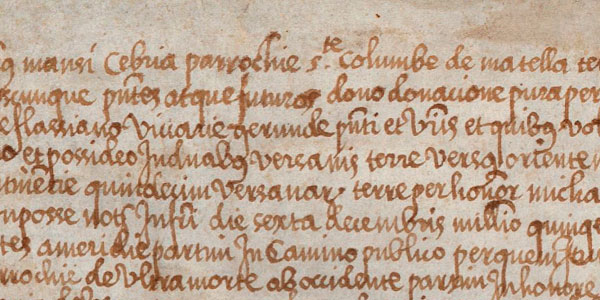 mansi Cebria parrochie ste Columbe de matella te
scunque pntes atque futuros dono donacione pura per
e flassiano Vicarie gerunde pnti et et quibus vo
o et possideo In duabus versanis terre versus oriente
quindecim Versanar terre per honor micha
mposse not Infri die sexta decembris millio quinq
tes a meridie partim In Camino publico per quem
rrochie de Ultramorte ab occidente partim In honore